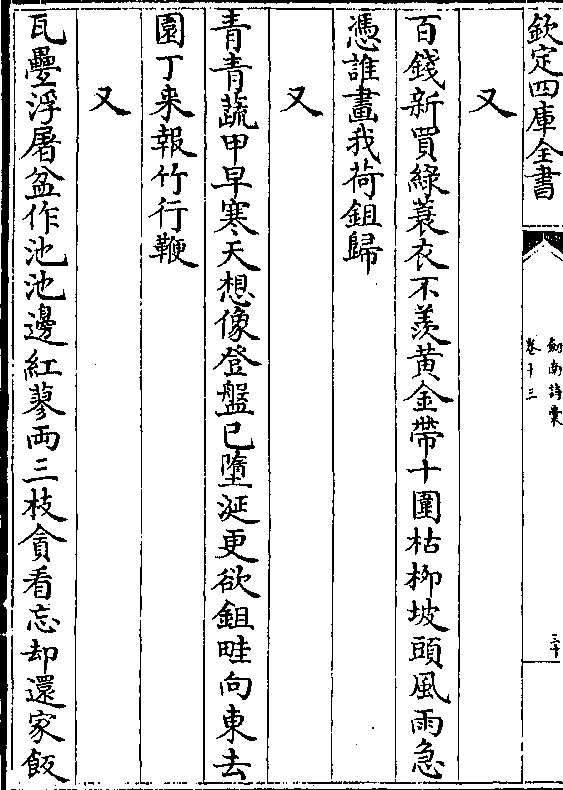 欽定四庫全書
劍南詩稾
卷十三
三十
又
百錢新買綠蓑衣不羨黃金帶十圍枯柳坡頭風雨急
憑誰畫我荷鉏歸
又
青青蔬甲早寒天想像登盤已墮涎更欲鉏畦向東去
園丁来報竹行鞭
又
瓦疊浮屠盆作池池邊紅蓼兩三枝貪看忘却還家飯